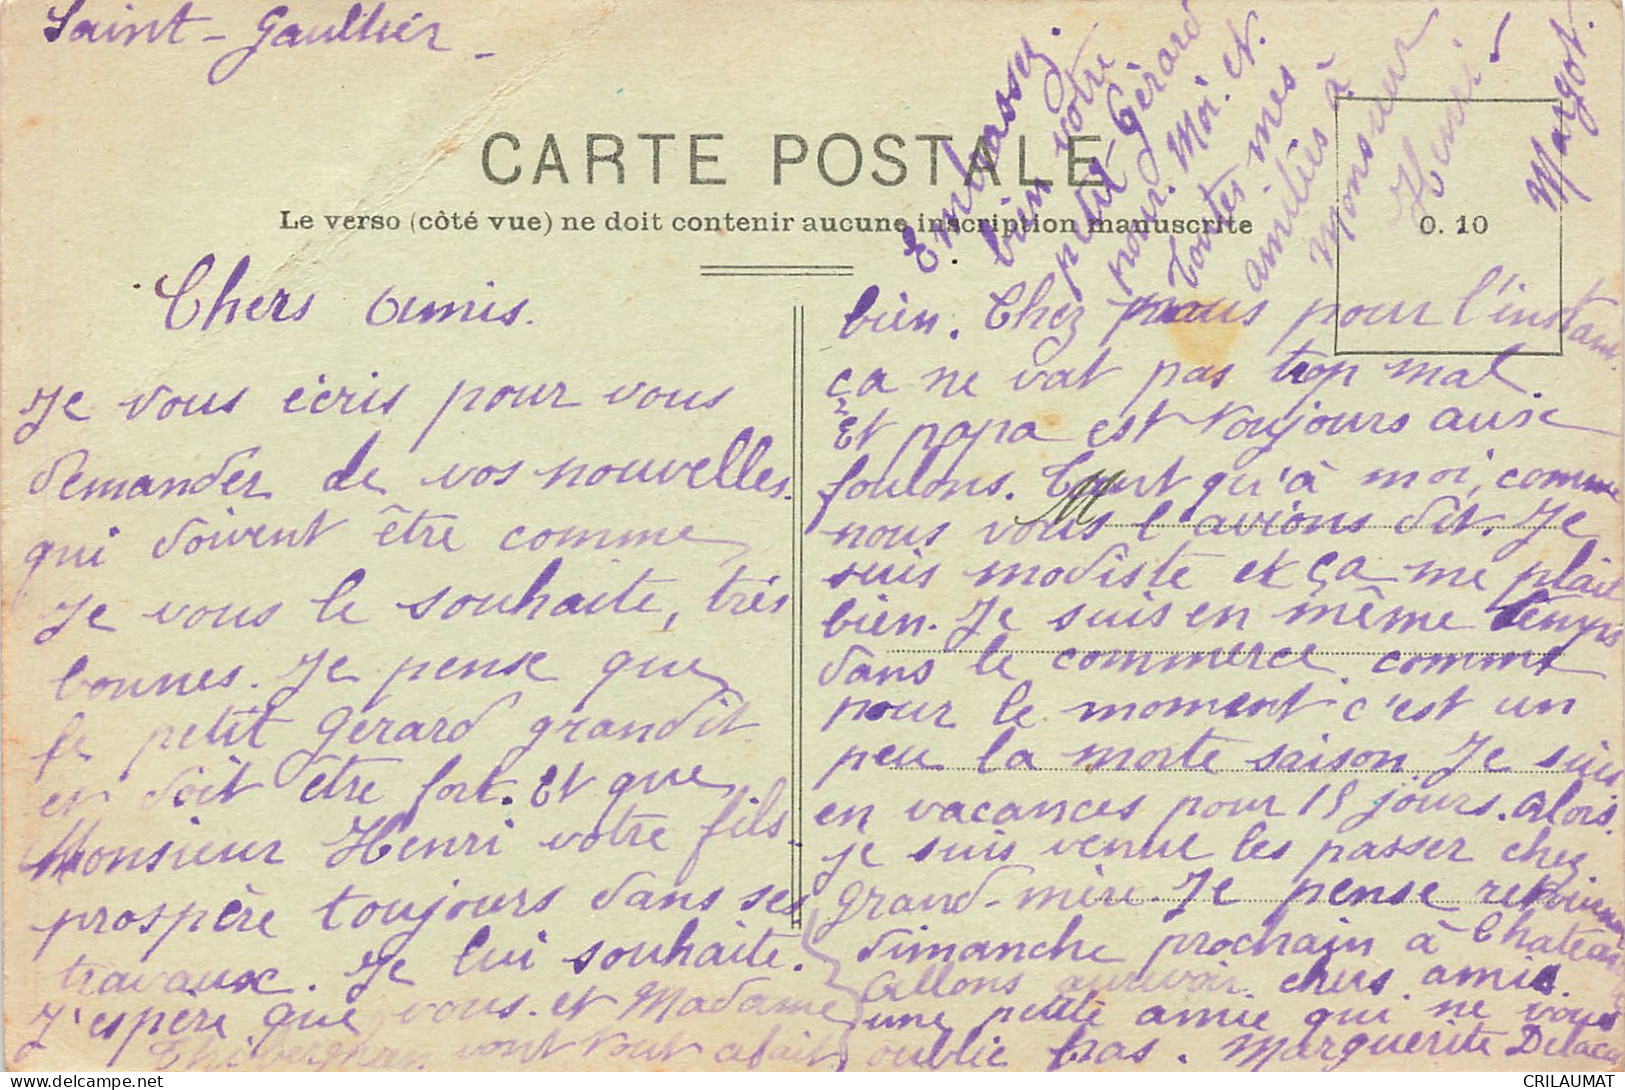 Saint-Gaultier
CARTE POSTALE
Le verso (côté vue) ne doit contenir aucune inscription manuscrite
0.10
Chers Amis.
Je vous écris pour vous
demander de vos nouvelles.
qui doivent être comme
Je vous le souhaite, très
bonnes. Je pense que
le petit Gérard grandit
et doit être fort. Et que
Monsieur Henri votre fils
prospère toujours dans ses
travaux. Je lui souhaite.
J'espère que vous et Madame
vont tout à fait
bien. Chez nous pour l'instant
ça ne vat pas trop mal.
Et papa est toujours aux
foulons. Tant qu'à moi, comme
nous vous l'avions dit. Je
suis modiste et ça me plait
bien. Je suis en même temps
dans le commerce comme
pour le moment c'est un
peu la morte saison. Je suis
en vacances pour 15 jours. Alors
je suis venue les passer chez
grand-mère. Je pense
dimanche prochain à
Allons aurevoir chers amis.
une petite amie qui ne vous
oublie pas. Marguerite
Embrassez
bien votre
petit Gérard
pour Moi. et
toutes mes
amitiés à
Monsieur
Henri
Margot.
CRILAUMAT